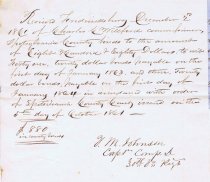 Received Fredericksburg December 9th
1861 of Charles C. Wellford commissioner,
Spotsylvania County bonds to the amount
Eight Hundred & Eighty Dollars, to wit
Forty four, twenty dollar bonds payable on the
first day of January 1863, and other Twenty
dollar bonds, payable on the first day of
January 1864 in accordance with order
of Spotsylvania County Court issued on the
5th day of October 1861
$880
in county bonds
J. M. Johnson
Capt Comp. I
30th Va Regt